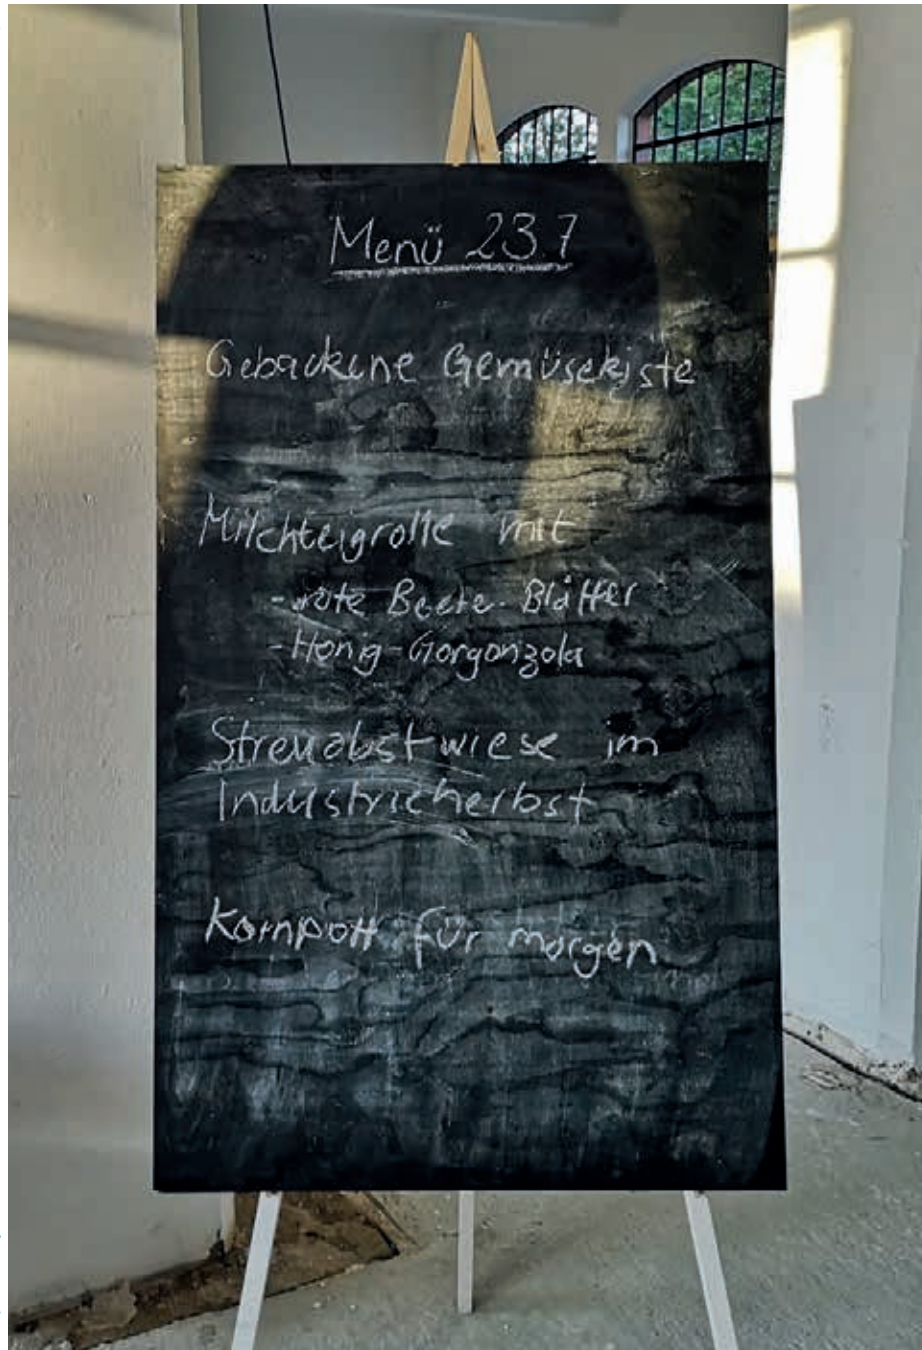 Menü 23.7
Gebackene Gemüsekiste
Milchteigrolle mit
- rote Beete-Blätter
- Honig-Gorgonzola
Streuobstwiese im
Industrieherbst
Kornpott für morgen